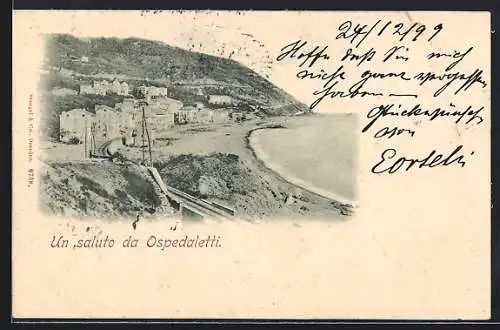 24/12/99
Hoffe daß Sie mich
nicht ganz vergessen
haben
Glückwünsche
von
Stengel & Co., Dresden
Un saluto da Ospedaletti.